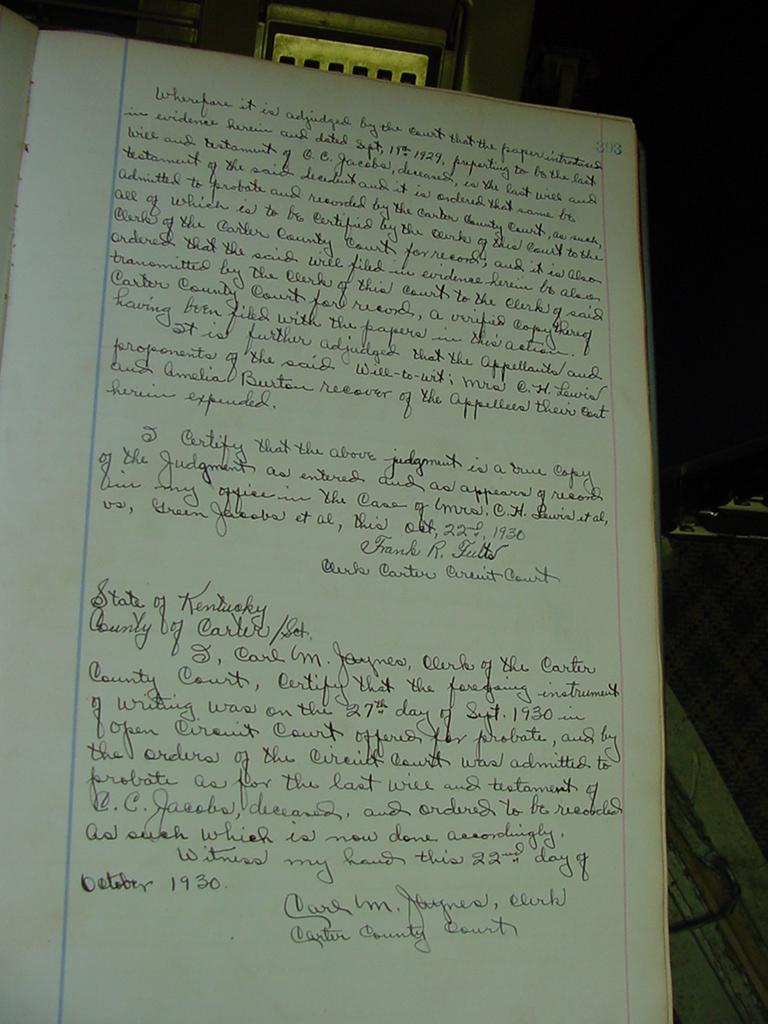 393
Wherefore it is adjudged by the Court that the paper introduced
in evidence herein and dated Sept, 19th 1929, purporting to be the last
Will and testament of C. C. Jacobs, deceased, is the last will and
testament of the said decedent and it is ordered that same be
admitted to probate and recorded by the Carter County Court, as such,
all of which is to be Certified by the Clerk of this Court to the
Clerk of the Carter County Court for record; and it is also
ordered that the said will filed in evidence herein be also
transmitted by the Clerk of this Court to the Clerk of said
Carter County Court for record, a verified Copy thereof
having been filed with the papers in this action.
It is further adjudged that the Appellants and
proponents of the said Will-to-wit; Mrs C. H. Lewis
and Amelia Burton recover of the Appellees their Cost
herein expended.
I Certify that the above judgment is a true Copy
of the Judgment as entered and as appears of record
in my office in the Case of Mrs. C. H. Lewis et al,
vs, Green Jacobs et al, this Oct, 22nd, 1930
Frank R. Fults
Clerk Carter Circuit Court
State of Kentucky
County of Carter / Sct.
I, Carl M. Jaynes, Clerk of the Carter
County Court, Certify that the foregoing instrument
of writing was on the 27th day of Sept. 1930 in
open Circuit Court offered for probate, and by
the orders of the Circuit Court was admitted to
probate as for the last will and testament of
C. C. Jacobs, deceased, and ordered to be recorded
as such which is now done accordingly.
Witness my hand this 22nd day of
October 1930.
Carl M. Jaynes, Clerk
Carter County Court